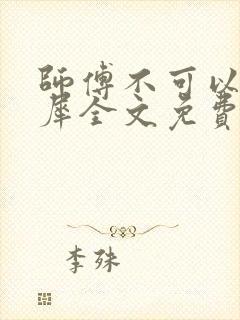 師傅不可以
犀全文免費
李殊